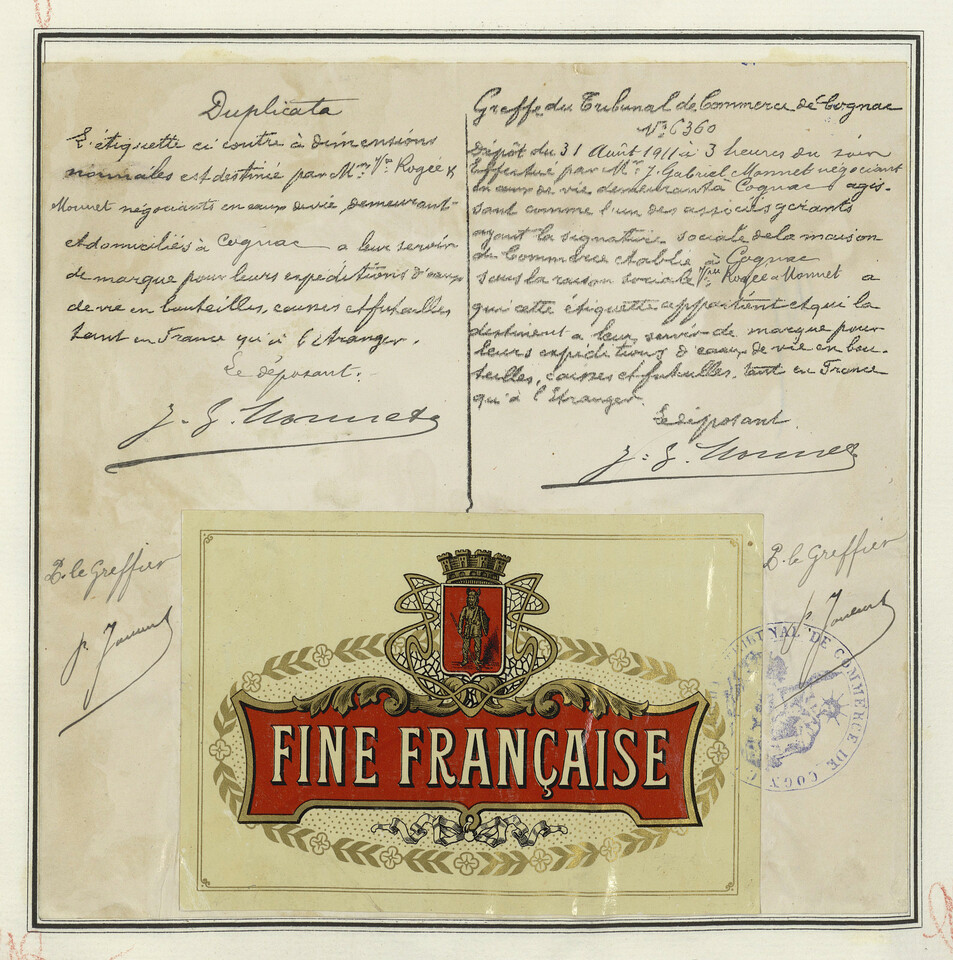 Duplicata
L'étiquette ci contre à dimensions
normales est destiné par Mrs Vve Rogée &
Monnet négociants en eaux de vie demeurant
et domiciliés à Cognac a leur servir
de marque pour leurs expéditions d'eaux
de vie en bouteilles, caisses et futailles
tant en France qu'à l'étranger.
Le déposant.
J. G. Monnet
P. le Greffier
Greffe du Tribunal de Commerce de Cognac
No 6360
Dépôt du 31 Août 1911 à 3 heures du soir
Effectué par Mr J. Gabriel Monnet négociant
en eaux de vie demeurant a Cognac agis-
sant comme l'un des associés gérants
ayant la signature sociale de la maison
de Commerce établie à Cognac
sous la raison sociale Vve Rogée & Monnet a
qui cette étiquette appartient et qui la
destinent a leur servir de marque pour
leurs expéditions d'eaux de vie en bou-
teilles, caisses et futailles, tant en France
qu'à l'étranger.
Le déposant
J. G. Monnet
P. le Greffier
TRIBUNAL DE COMMERCE DE COGN
FINE FRANÇAISE